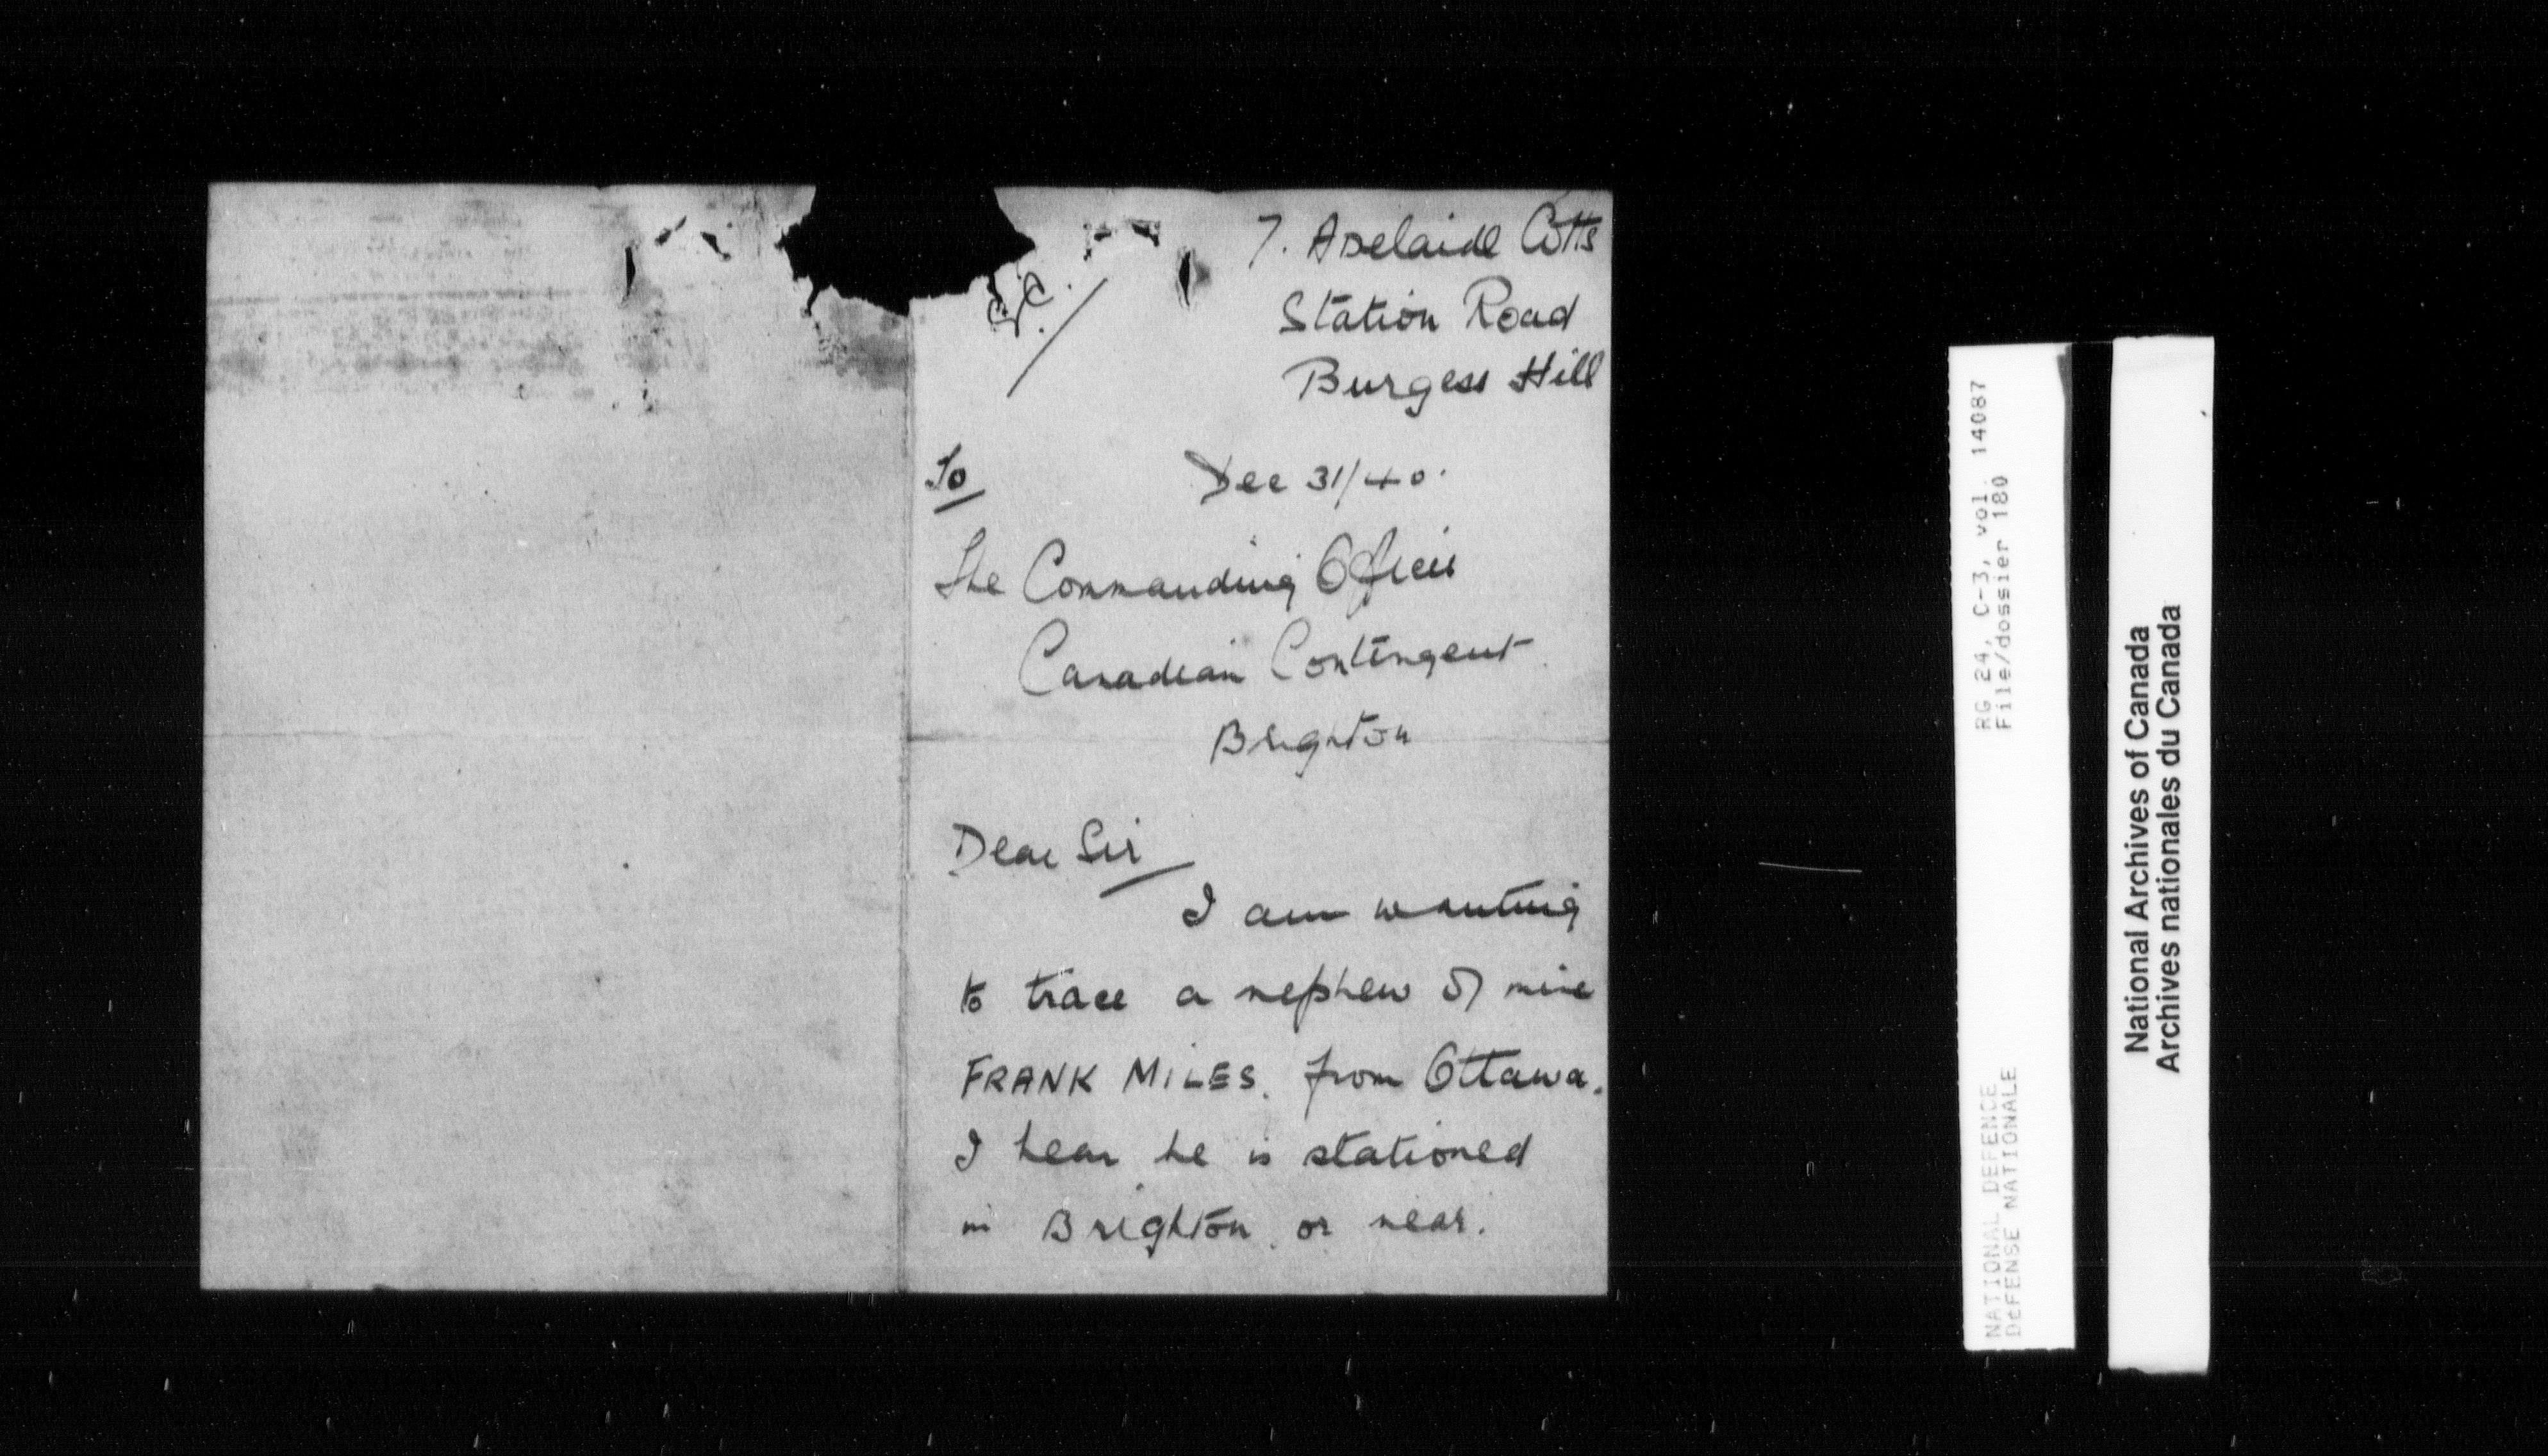 7. Adelaide Cotts
Station Road
Burgess Hill
To
Dec 31/40.
The Commanding Officer
Canadian Contingent
Brighton
Dear Sir
I am wanting
to trace a nephew of mine
FRANK MILES. from Ottawa.
I hear he is stationed
in Brighton. or near.
RG 24, C-3, vol. 14087
File/dossier 180
NATIONAL DEFENCE
DéFENSE NATIONALE
National Archives of Canada
Archives nationales du Canada